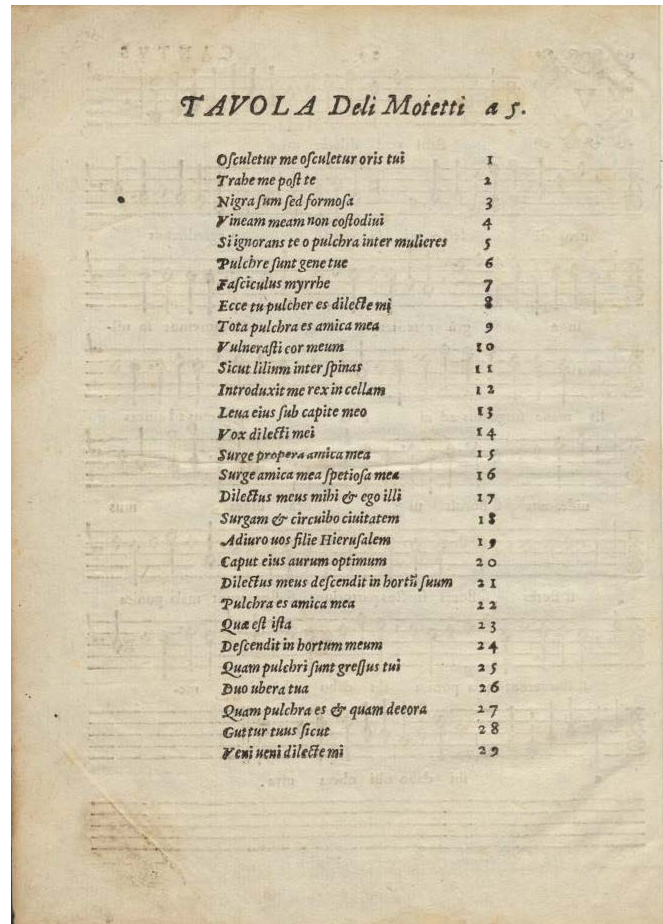 TAVOLA Deli Motetti a 5.
Osculetur me osculetur oris tui 1
Trahe me post te 2
Nigra sum sed formosa 3
Vineam meam non costodiui 4
Si ignorans te o pulchra inter mulieres 5
Pulchre sunt gene tue 6
Fasciculus myrrhe 7
Ecce tu pulcher es dilecte mi 8
Tota pulchra es amica mea 9
Vulnerasti cor meum 10
Sicut lilium inter spinas 11
Introduxit me rex in cellam 12
Leua eius sub capite meo 13
Vox dilecti mei 14
Surge propera amica mea 15
Surge amica mea spetiosa mea 16
Dilectus meus mihi & ego illi 17
Surgam & circuibo ciuitatem 18
Adiuro uos filie Hierusalem 19
Caput eius aurum optimum 20
Dilectus meus descendit in hortū suum 21
Pulchra es amica mea 22
Quæ est ista 23
Descendit in hortum meum 24
Quam pulchri sunt gressus tui 25
Duo ubera tua 26
Quam pulchra es & quam deeora 27
Guttur tuus sicut 28
Veni ueni dilecte mi 29